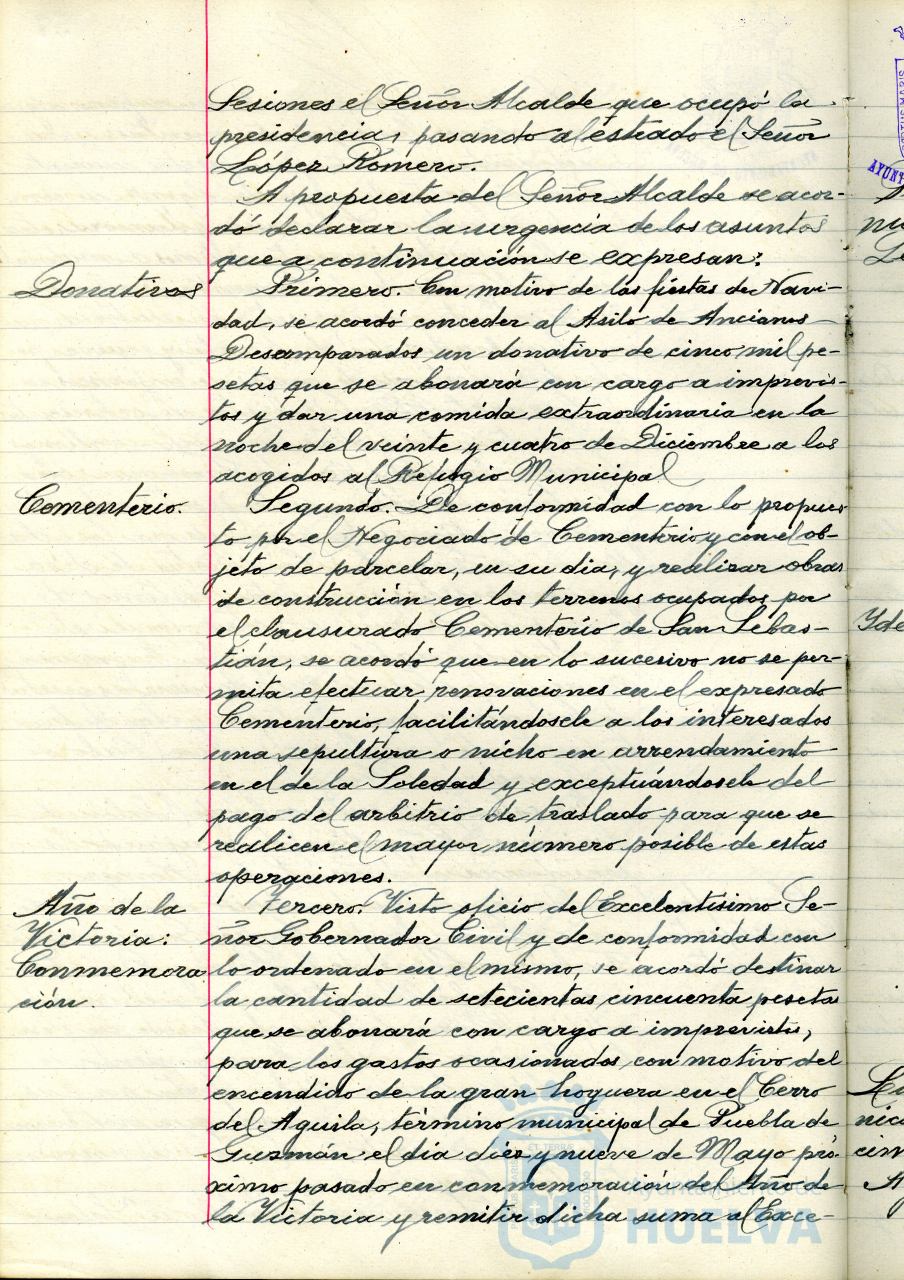 Sesiones el Señor Alcalde que ocupó la
presidencia, pasando al estrado el Señor
López Romero.
A propuesta del Señor Alcalde se acor-
dó declarar la urgencia de los asuntos
que a continuación se expresan:
Donativos
Primero. Con motivo de las fiestas de Navi-
dad, se acordó conceder al Asilo de Ancianos
Desamparados un donativo de cinco mil pe-
setas que se abonará con cargo a imprevis-
tos y dar una comida extraordinaria en la
noche del veinte y cuatro de Diciembre a los
acogidos al Refugio Municipal
Cementerio.
Segundo. De conformidad con lo propues
to por el Negociado de Cementerio y con el ob-
jeto de parcelar, en su dia, y realizar obras
de construcción en los terrenos ocupados por
el clausurado Cementerio de San Sebas-
tián, se acordó que en lo sucesivo no se per-
mita efectuar renovaciones en el expresado
Cementerio, facilitándosele a los interesados
una sepultura o nicho en arrendamiento
en el de la Soledad y exceptuandosele del
pago del arbitrio de traslado para que se
realicen el mayor número posible de estas
operaciones.
Año de la
Victoria:
Conmemora
ción.
Tercero. Visto oficio del Excelentisimo Se-
ñor Gobernador Civil y de conformidad con
lo ordenado en el mismo, se acordó destinar
la cantidad de setecientas cincuenta pesetas
que se abonará con cargo a imprevistos,
para los gastos ocasionados con motivo del
encendido de la gran hoguera en el Cerro
del Aguila, término municipal de Puebla de
Guzmán el dia diez y nueve de Mayo pró-
ximo pasado en conmemoración del Año de
la Victoria y remitir dicha suma al Exce-
Ayuntamiento de
HUELVA